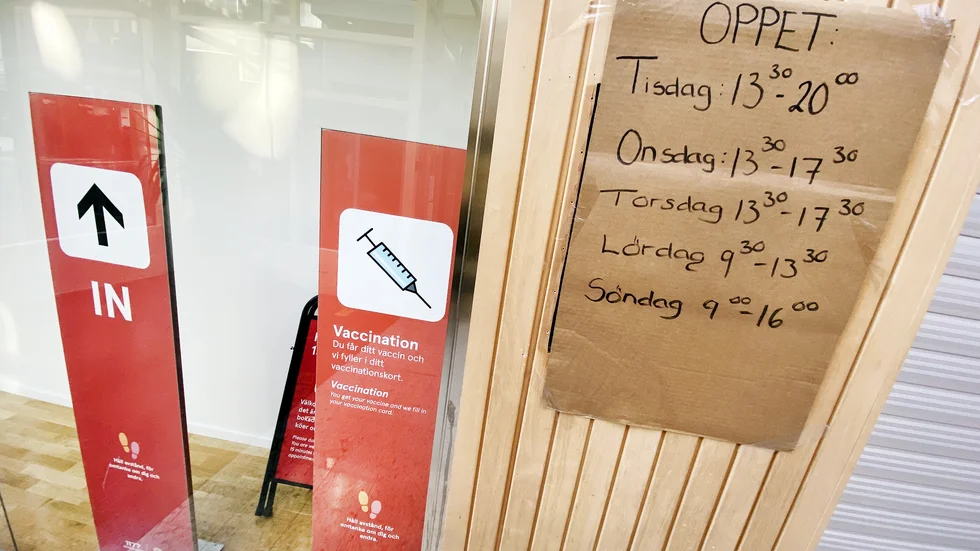 IN
Håll avstånd, för
omtanke om dig och
andra.
Vaccination
Du får ditt vaccin och
vi fyller i ditt
vaccinationskort.
Vaccination
You get your vaccine and we fill in
your vaccination card.
Håll avstånd, för
omtanke om dig och
andra.
ÖPPET:
Tisdag: 13 30 - 20 00
Onsdag: 13 30 - 17 30
Torsdag 13 30 - 17 30
Lördag 9 30 - 13 30
Söndag 9 00 - 16 00